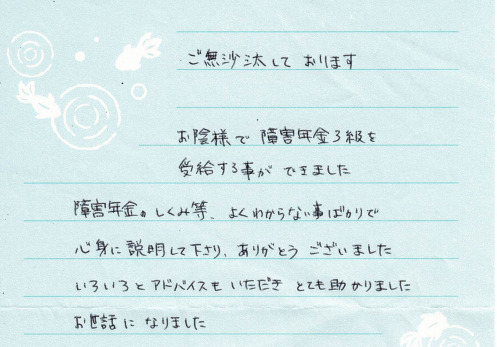 ご無沙汰して おります
お陰様で 障害年金3級を
受給する事が できました
障害年金のしくみ等、よくわからない事ばかりで
心身に説明して下さり、ありがとう ございました
いろいろと アドバイスも いただき とても助かりました
お世話に なりました